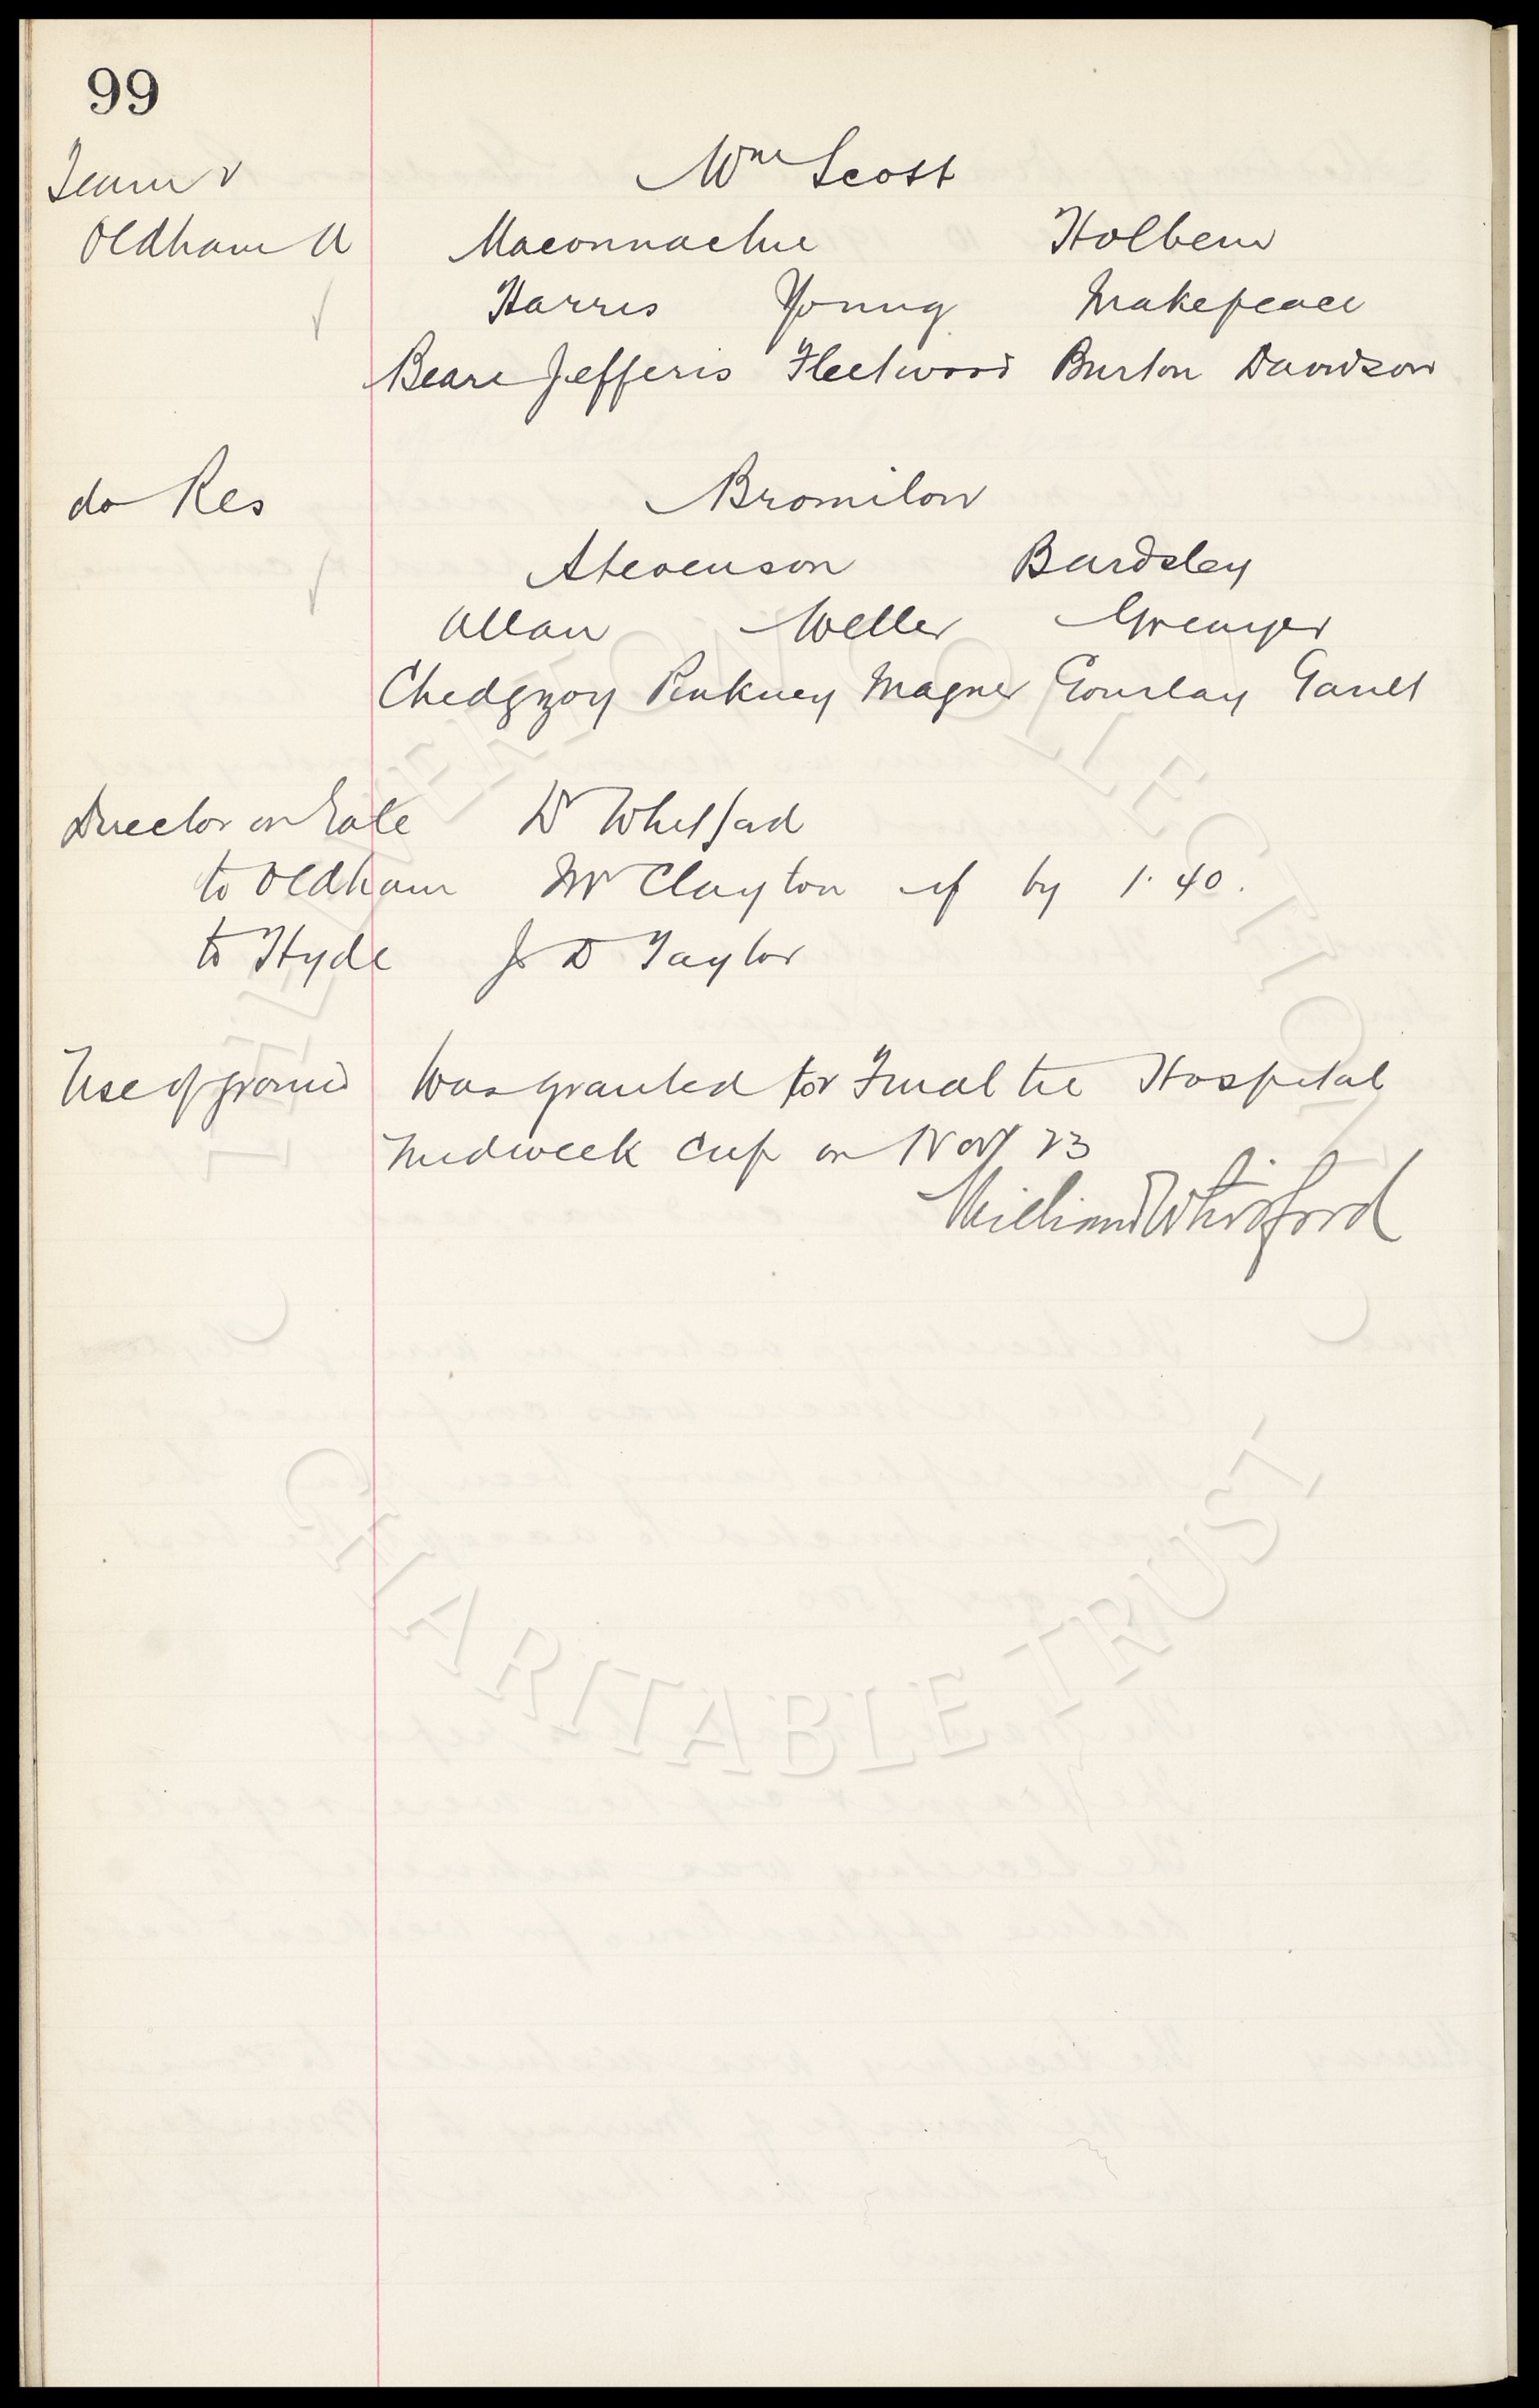 99
Team v Wm Scott
Oldham A Maconnachie Holbem
Harris Young Makepeace
Beare Jefferis Fleetwood Burton Davidson
do Res Bromilow
Stevenson Bardsley
Allan Weller Grenyer
Chedgzoy Pinkney Magner Gourlay Gault
Director on Gate Dr Whitford
to Oldham Mr Clayton if by 1.40.
to Hyde J D Taylor
Use of ground Was granted for Final tie Hospital
Midweek Cup on Nov 23
William Whitford
THE EVERTON COLLECTION
CHARITABLE TRUST